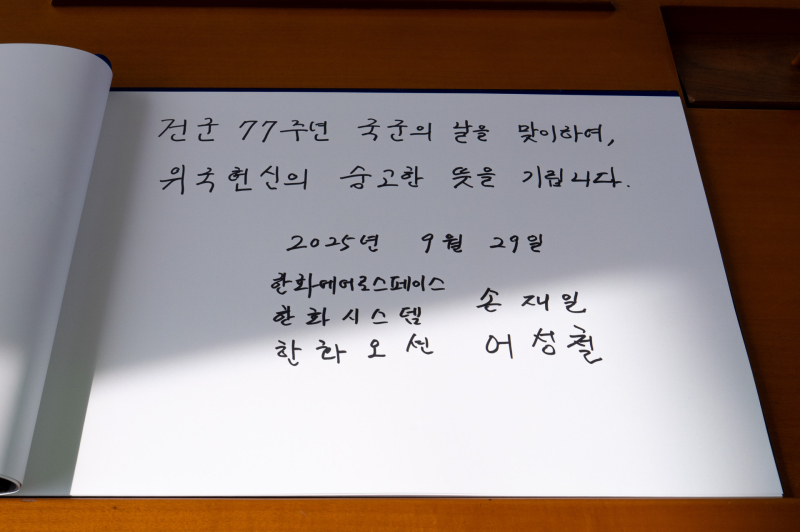 건군 77주년 국군의 날을 맞이하여,
위국헌신의 숭고한 뜻을 기립니다.
2025년 9월 29일
한화에어로스페이스
한화시스템 손재일
한화오션 어성철